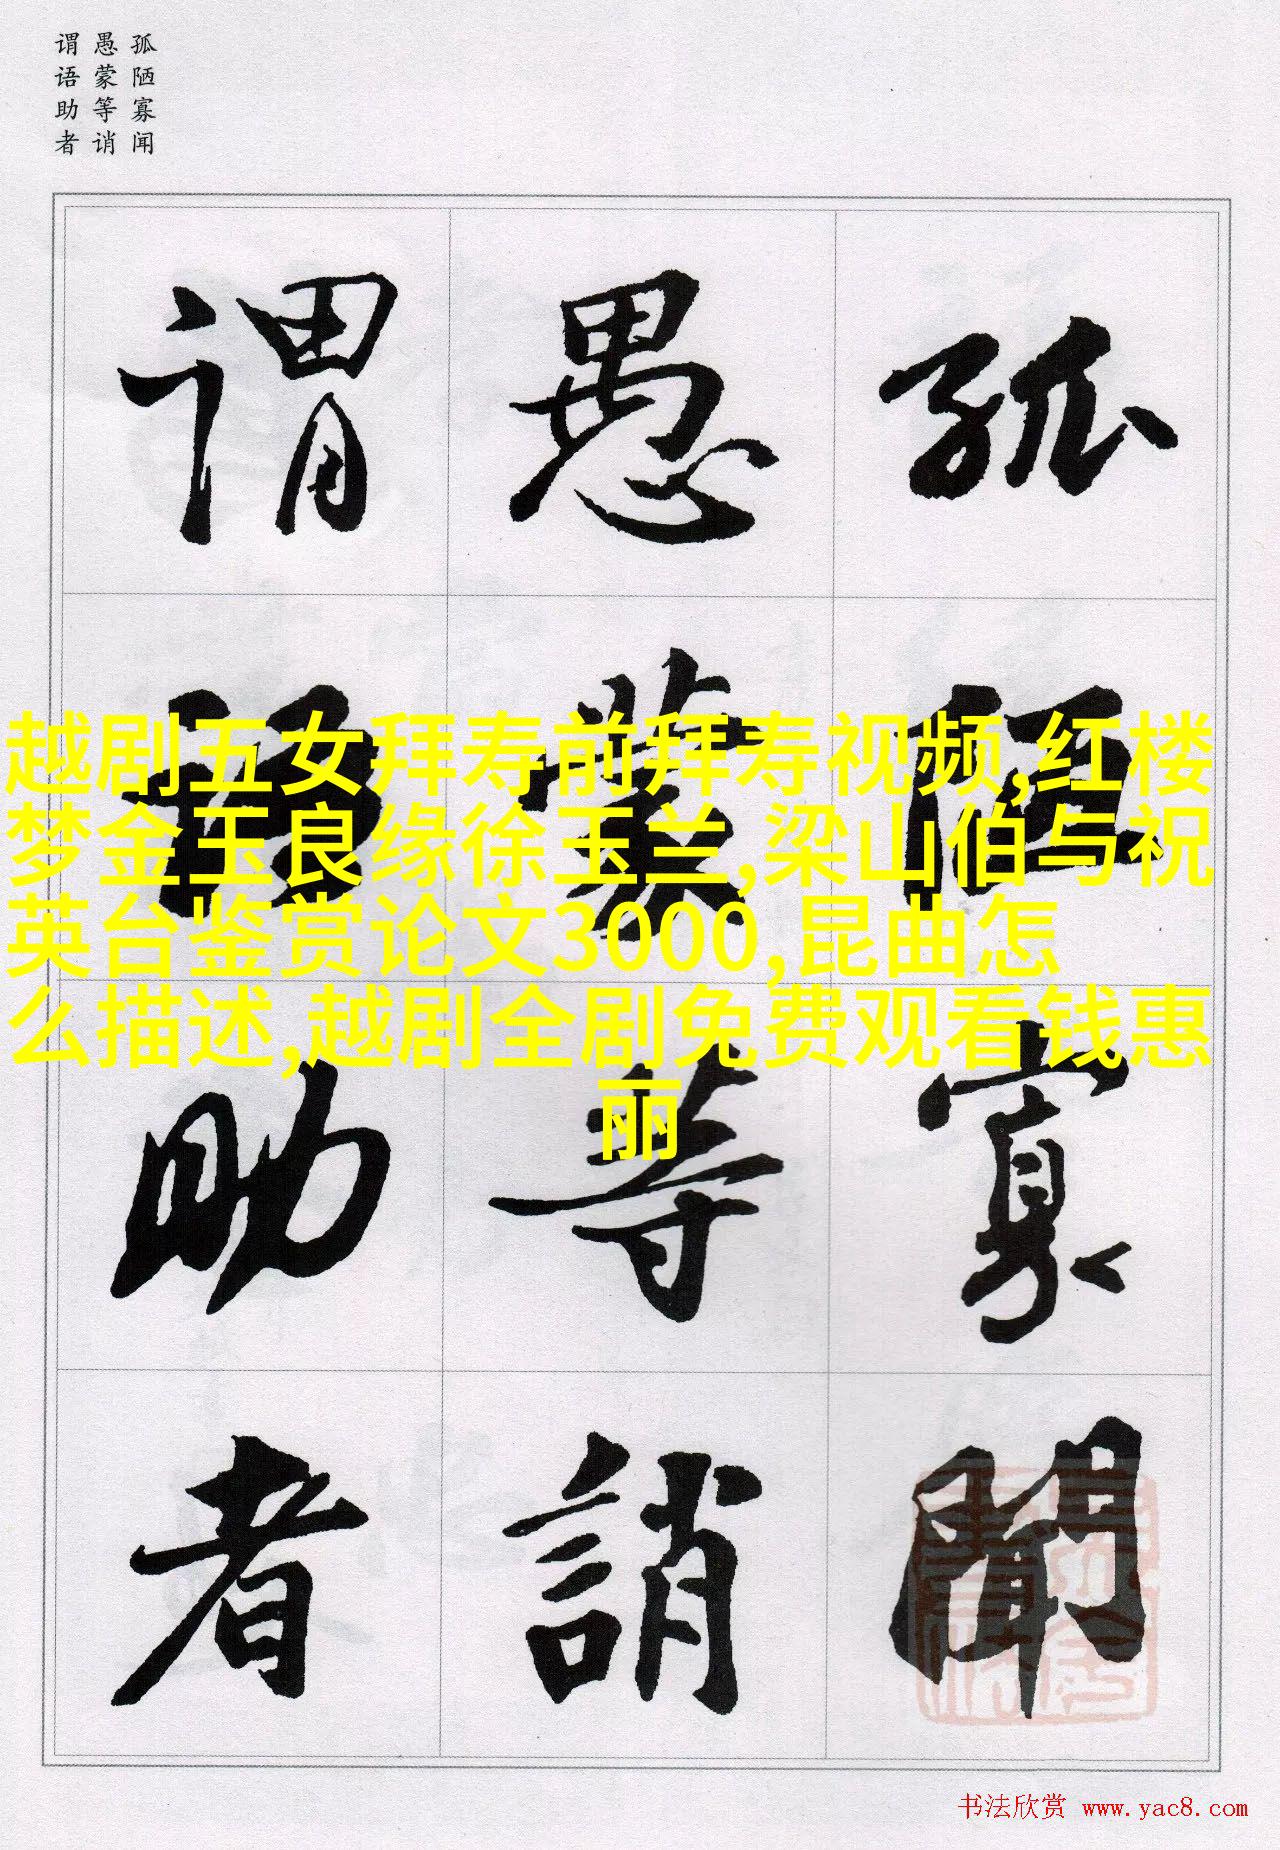 孤陋寡闻
愚蒙等诮
谓语助者
孤陋寡聞
愚蒙等誚
谓语助者
越剧五女拜寿前拜寿视频,红楼
梦金玉良缘徐玉兰,梁山伯与祝
英台鉴赏论文3000,昆曲怎
么描述,越剧全剧免费观看钱惠
丽
书法欣赏 www.yac8.com